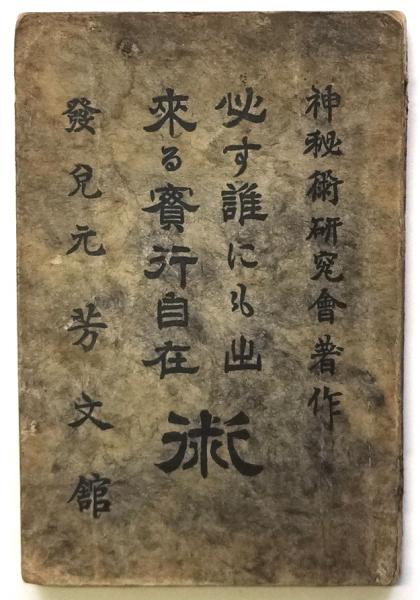 神秘術研究會著作
必す誰にも出
來る實行自在
術
發兌元 芳文館